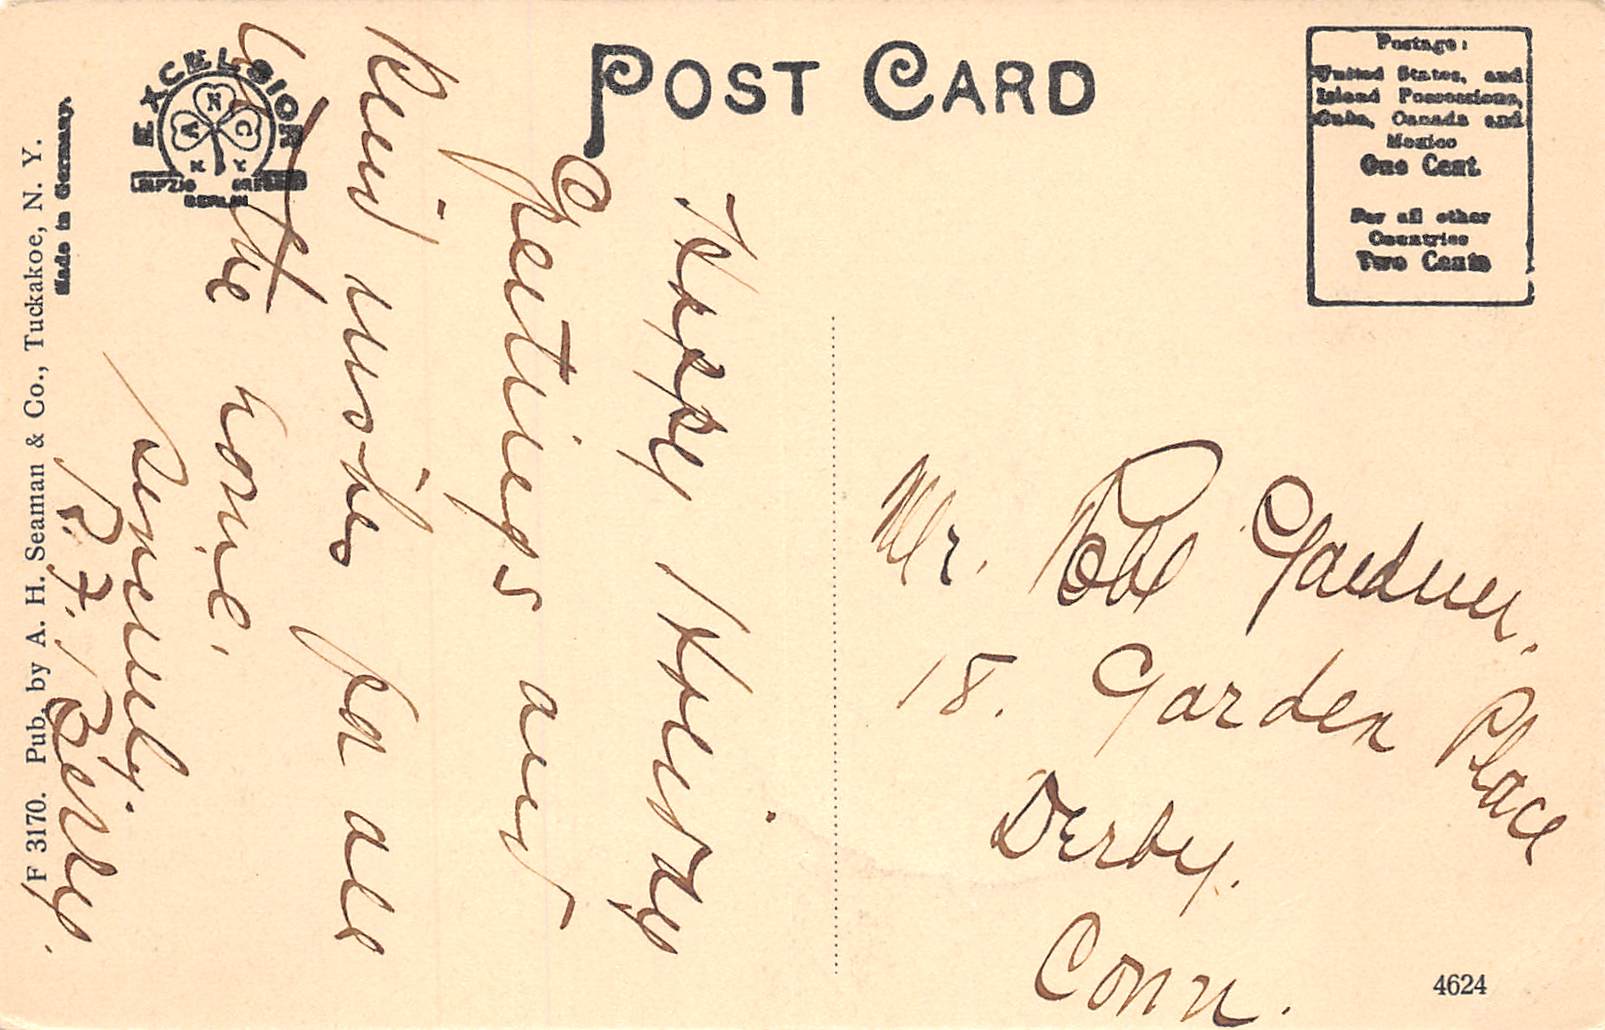 POST CARD
Postage:
United States, and
Island Possessions,
Cuba, Canada and
Mexico
One Cent.
For all other
Countries
Two Cents
EXCELSIOR
N
A
C
K
Y
LEIPZIG DRESDEN
BERLIN
F 3170. Pub. by A. H. Seaman & Co., Tuckakoe, N. Y.
Made in Germany.
Happy Holiday
Greetings and
Kind wishes for all
the home.
Sincerely
R. F. Bailey.
Mr. Robt Gardner.
18. Garden Place
Derby.
Conn.
4624